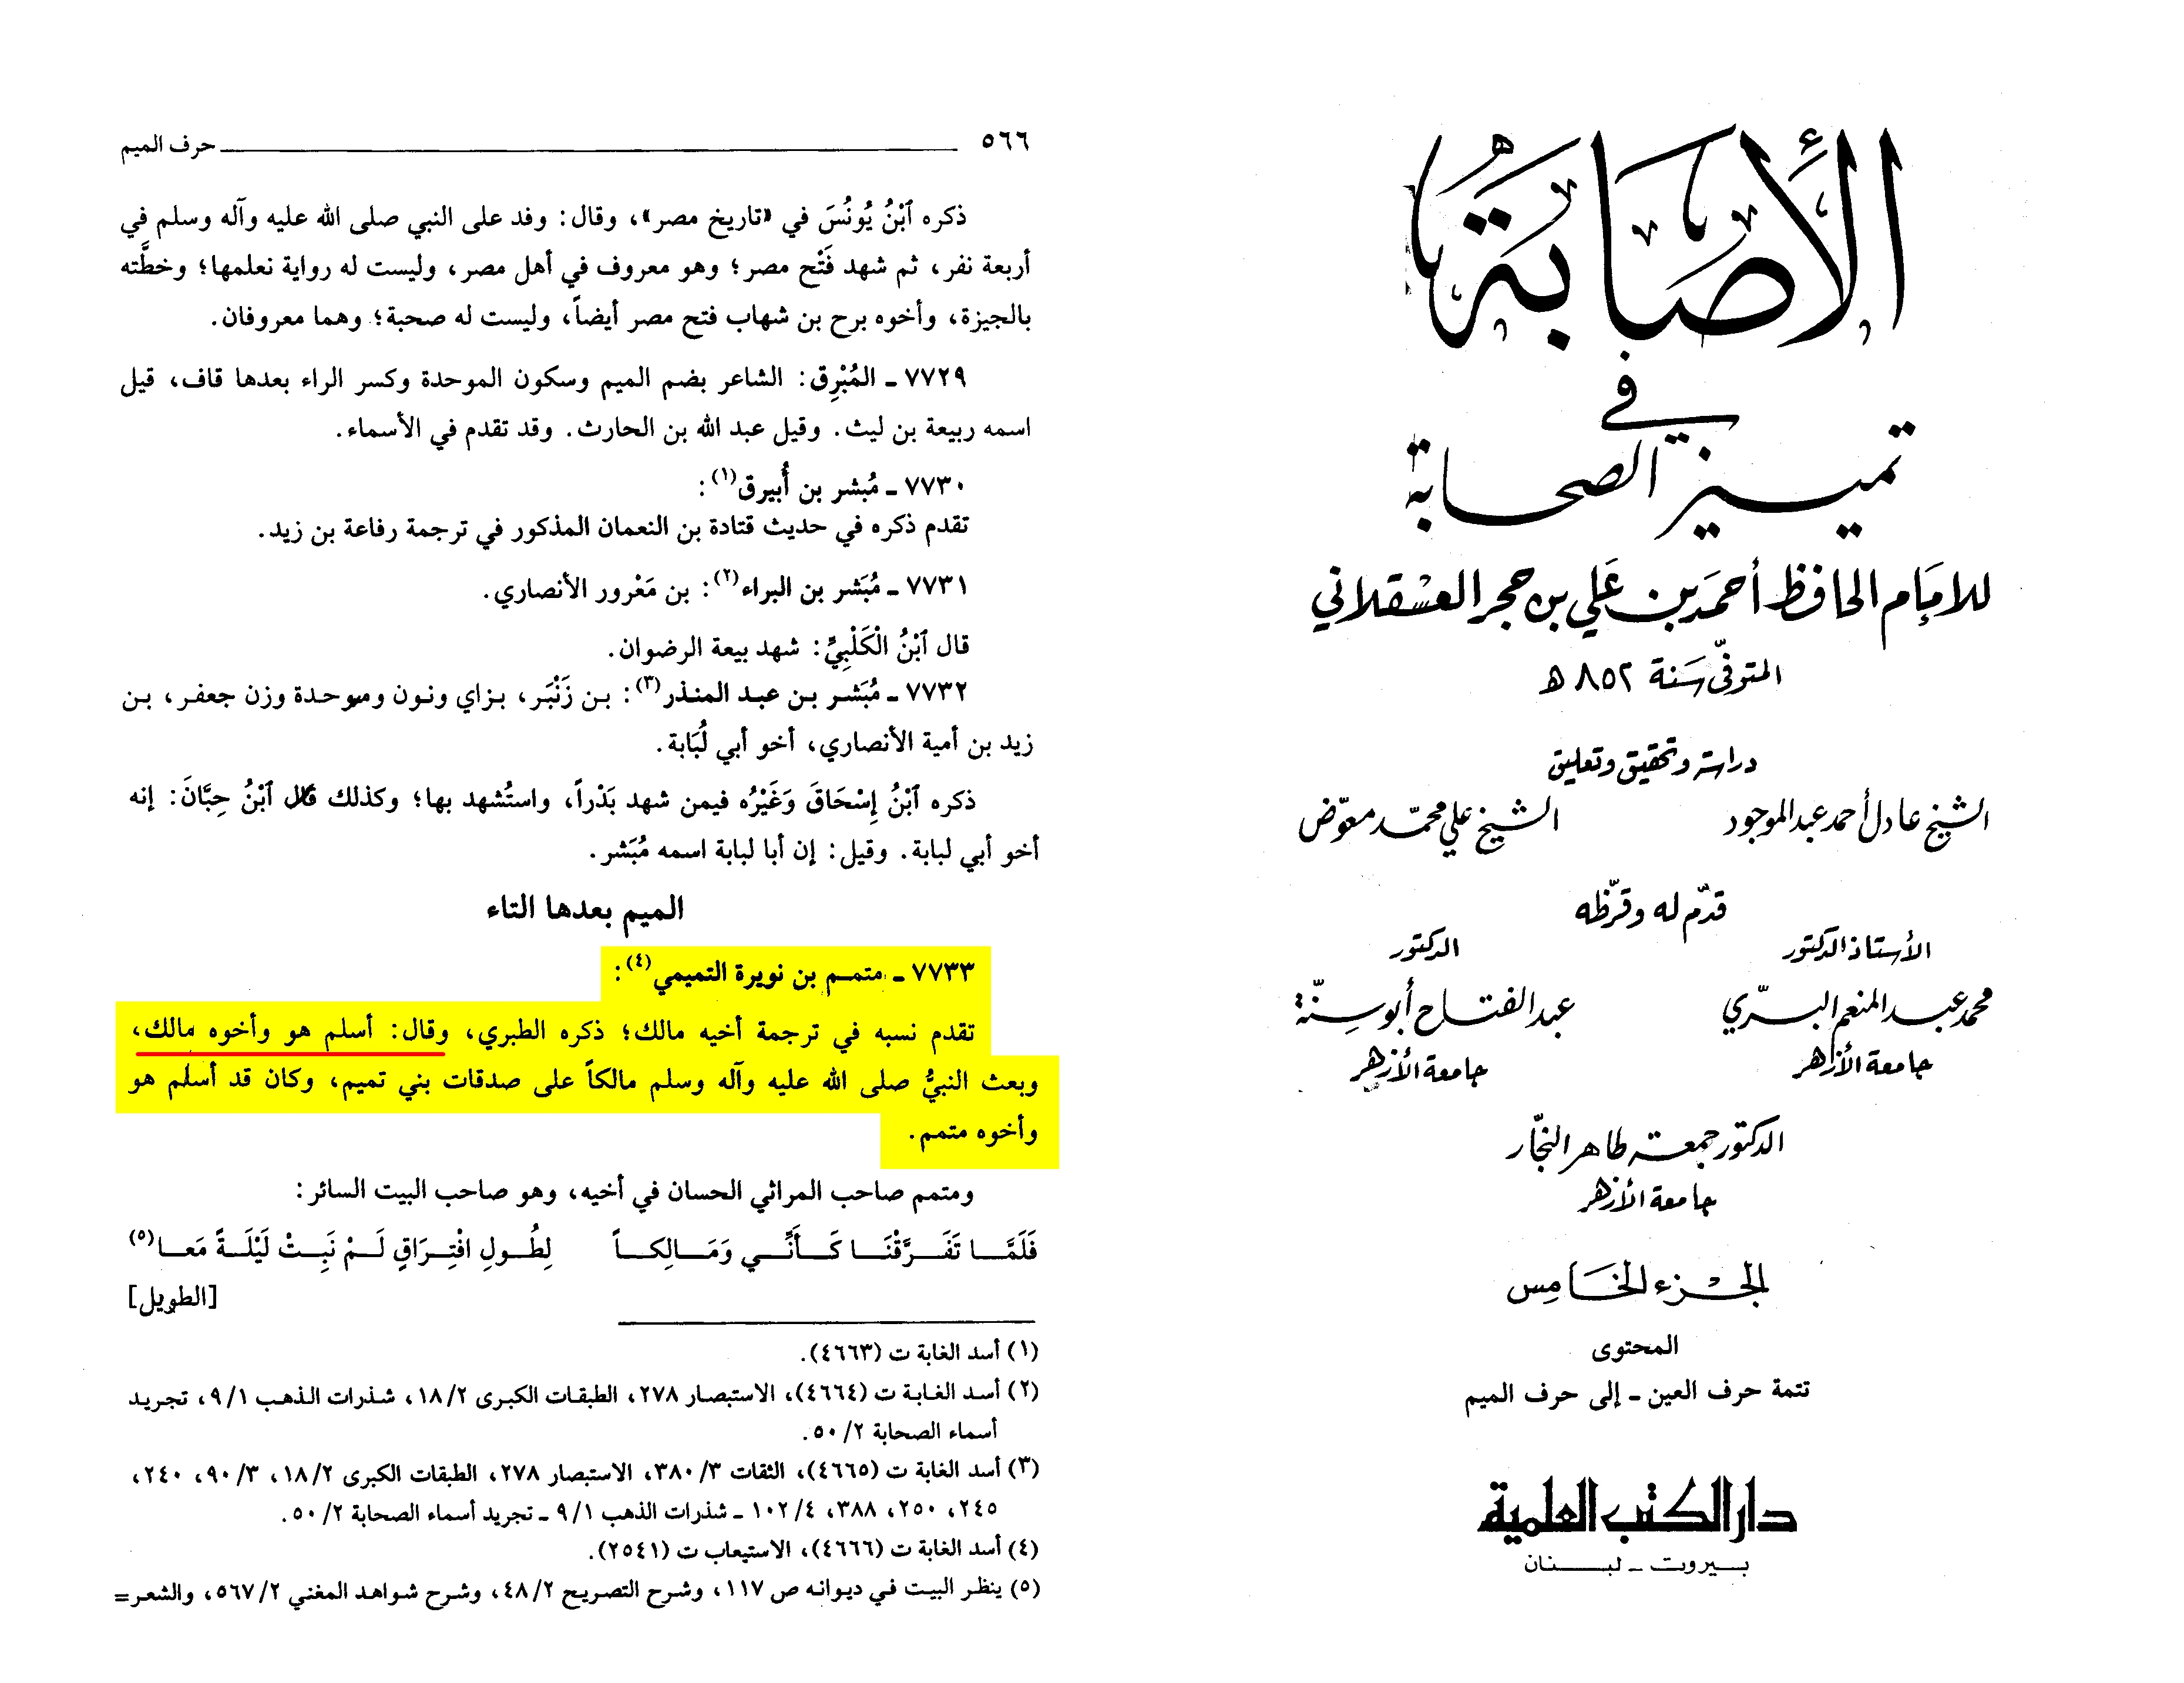 الإصابة
في
تمييز الصحابة
للإمام الحافظ أحمد بن علي بن حجر العسقلاني
المتوفى سَنة ٨٥٢ هـ
دراسة وتحقيق وتعليق
الشيخ عادل أحمد عبد الموجود الشيخ علي محمد معوّض
قدّم له وقرّظه
الأستاذ الدكتور الدكتور
محمد عبد المنعم البسرّي عبد الفتاح أبو سِنّة
جامعة الأزهر جامعة الأزهر
الدكتور جمعة طاهر النجّار
جامعة الأزهر
الجزء الخامس
المحتوى
تتمة حرف العين - إلى حرف الميم
دار الكتب العلمية
بيروت - لبنان
٥٦٦ حرف الميم
ذكره ٱبْنُ يُونُسَ في «تاريخ مصر»، وقال: وفد على النبي صلى الله عليه وآله وسلم في
أربعة نفر، ثم شهد فَتْح مصر؛ وهو معروف في أهل مصر، وليست له رواية نعلمها؛ وخطَّته
بالجيزة، وأخوه برح بن شهاب فتح مصر أيضاً، وليست له صحبة؛ وهما معروفان.
٧٧٢٩ ـ المُبْرِق: الشاعر بضم الميم وسكون الموحدة وكسر الراء بعدها قاف، قيل
اسمه ربيعة بن ليث. وقيل عبد الله بن الحارث. وقد تقدم في الأسماء.
٧٧٣٠ ـ مُبشر بن أُبيرق(١):
تقدم ذكره في حديث قتادة بن النعمان المذكور في ترجمة رفاعة بن زيد.
٧٧٣١ ـ مُبَشر بن البراء(٢): بن مَعْرور الأنصاري.
قال ٱبْنُ الْكَلْبِيِّ: شهد بيعة الرضوان.
٧٧٣٢ ـ مُبَشر بن عبد المنذر(٣): بن زَنْبَر، بزاي ونون وموحدة وزن جعفر، بن
زيد بن أمية الأنصاري، أخو أبي لُبَابة.
ذكره ٱبْنُ إِسْحَاقَ وَغَيْرُه فيمن شهد بَدْراً، واستُشهد بها؛ وكذلك قال ٱبْنُ حِبَّانَ: إنه
أخو أبي لبابة. وقيل: إن أبا لبابة اسمه مُبَشر.
الميم بعدها التاء
٧٧٣٣ ـ متمم بن نويرة التميمي(٤):
تقدم نسبه في ترجمة أخيه مالك؛ ذكره الطبري، وقال: أسلم هو وأخوه مالك،
وبعث النبيُّ صلى الله عليه وآله وسلم مالكاً على صدقات بني تميم، وكان قد أسلم هو
وأخوه متمم.
ومتمم صاحب المراثي الحسان في أخيه، وهو صاحب البيت السائر:
فَلَمَّا تَفَرَّقْنَا كَأَنِّي وَمَالِكاً لِطُولِ افْتِرَاقٍ لَمْ نَبِتْ لَيْلَةً مَعا(٥)
[الطويل]
(١) أسد الغابة ت (٤٦٦٣).
(٢) أسد الغابة ت (٤٦٦٤)، الاستبصار ٢٧٨، الطبقات الكبرى ١٨/٢، شذرات الذهب ٩/١، تجريد
أسماء الصحابة ٥٠/٢.
(٣) أسد الغابة ت (٤٦٦٥)، الثقات ٣٨٠/٣، الاستبصار ٢٧٨، الطبقات الكبرى ١٨/٢، ٩٠/٣، ٢٤٠،
٢٤٥، ٢٥٠، ٣٨٨، ١٠٢/٤ ـ شذرات الذهب ٩/١ ـ تجريد أسماء الصحابة ٥٠/٢.
(٤) أسد الغابة ت (٤٦٦٦)، الاستيعاب ت (٢٥٤١).
(٥) ينظر البيت في ديوانه ص ١١٧، وشرح التصريح ٤٨/٢، وشرح شواهد المغني ٥٦٧/٢، والشعر=